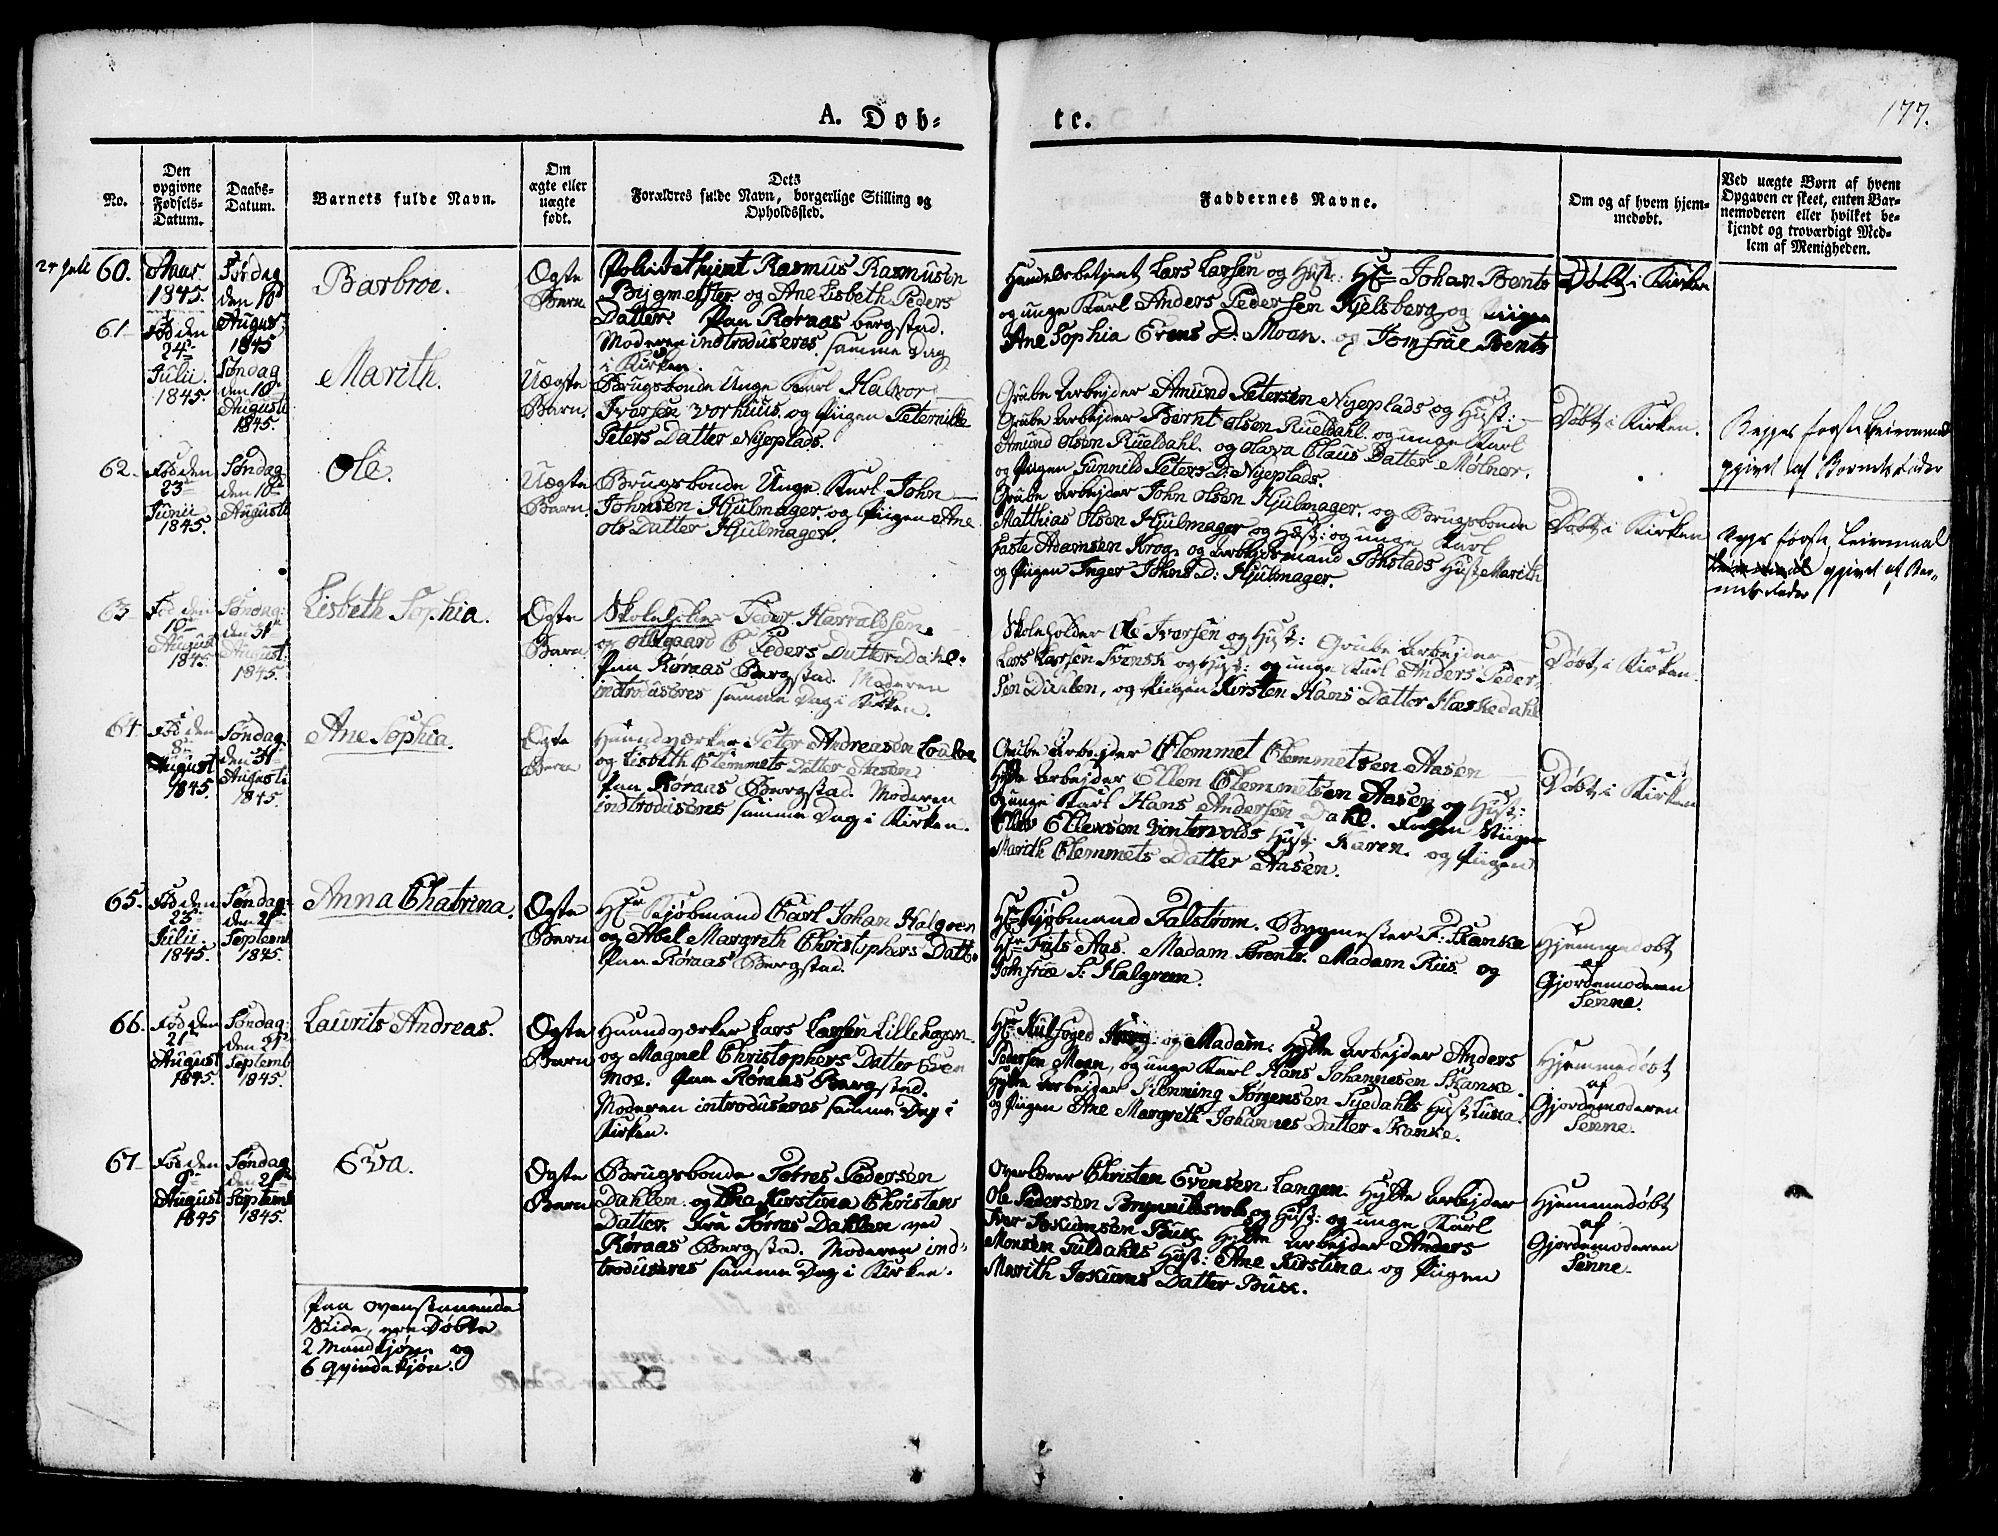 177.
A. Døb-
te.
No.
Den
opgivne
Fødsels-
Datum.
Daabs-
Datum.
Barnets fulde Navn.
Om
ægte eller
uægte
født.
Dets
Forældres fulde Navn, borgerlige Stilling og
Opholdssted.
Faddernes Navne.
Om og af hvem hjem-
medøbt.
Ved uægte Børn af hvem
Opgaven er skeet, enten Bar-
nemoderen eller hvilket be-
kjendt og troværdigt Med-
lem af Menigheden.
24 Juli
60.
1845.
Søndag
den 10de
August
1845
Barbroe.
Øgte
Barn
Rasmus Rasmusen
Bygmester og Ane Lisbeth Peders
Datter. Paa Røraas bergstad.
Moderen indtroduseres samme Dag
i Kirken.
Handelsbetjent Lars Larsen og Hust: Hr Johan Bents
og unge Karl Anders Pedersen Kjelsberg og Piigen
Ane Sophia Evens D: Moan. og Jomfrue Bents
Døbt i Kirken
61-
Fød den
24de
Julii.
1845.
Søndag
den 10de
Augusti
1845.
Marith.
Uøgte
Barn.
Brugsbonde Unge Karl Halvor
Iversen Vorhuus og Piigen Peternille
Peters Datter Nyeplads.
Grube Arbejder Amund Petersen Nyeplads og Hust:
Grube Arbejder Bernt Olsen Rueldahl. og unge Karl
Amund Olsen Rueldahl. og Olava Claus Datter Mølner.
og Piigen Gunnild Peters D: Nyeplads.
Døbt i Kirken.
Begges første Leiermaal
opgivet af Barnets Fader
62.
Fød den
23de
Junii
1845.
Søndag
den 10de
Augusti
Ole.
Uøgte
Barn.
Brugsbonde Unge Karl John
Johnsen Hjulmager. og Piigen Ane
Ols Datter Hjulmager.
Grube Arbejder John Olsen Hjulmager. og Brugsbonde
Matthias Olsen Hjulmager og Hust: og unge Karl
Faste Adamsen Krog. og Arbejdsmand Johstads Hust Marith
og Piigen Inger Johns D: Hjulmager
Døbt i Kirken
Begges første Leiermaal
opgivet af Bar-
nets Fader
63-
Fød den
10de
August
1845.
Søndag:
den 31te
August.
1845.
Lisbeth Sophia.
Øgte
Barn
Skoleholder Peder Harraldsen.
og Olegaard C Peders Datter Dahl.
Paa Røraas Bergstad. Moderen
indtroduseres samme Dag i Kirken.
Skoleholder Ole Iversen og Hust: Grube Arbejder
Lars Larsen Svensk og Hust: og unge Karl Anders Peder-
sen Dahlen, og Piigen Kirsten Hans Datter Hæskedahl
Døbt, i Kirken.
64.
Fød den
8de
August
1845.
Søndag
den 31te
Augusti
1845.
Ane Sophia.
Øgte
Barn
Haandværker Peter Andreasen
og Lisbeth Clemmets Datter Aasen
Paa Røraas Bergstad. Moderen
indtroduseres samme Dag i Kirken.
Grube Arbejder Clemmet Clemmetsen Aasen
Hytte Arbejder Ellen Clemmetsen Aasen og Hust:
og unge Karl Hans Andersen Dahl.
Ellevsen Vintervolds Hust: Karen og Piigen
Marith Clemmets Datter Aasen.
Døbt, i Kirken
65.
Fød den
23de
Julii
1845.
Søndag
den 21de
Septemb
1845.
Anna Chatrina.
Øgte
Barn
Hr Kjøbmand Carl Johan Halgren
og Abel Margreth Christophers Datt.
Paa Røraas Bergstad.
Hr Kjøbmand Falstrom. Bygmester F: Skanke
Hr Futs Aas. Madam Brentz. Madam Riis. og
Jomfrue S: Halgreen.
Hjemmedøbt
af
Gjordemoderen
Senne.
66.
Fød den
21de
August
1845.
Søndag:
den 21de
Septemb
1845.
Laurits Andreas.
Øgte
Barn
Haandværker Lars Larsen Lillehagen
og Magnel Christophers Datter Even
moe. Paa Røraas Bergstad.
Moderen introduseres samme Dag i
Kirken.
Hr Kulfoged og Madam. Hytte Arbejder Anders
Pedersen Moen, og unge Karl Hans Johannesen Skanke.
Hytte Arbejder Henning Jørgensen Syedahls Hust
og Piigen Ane Margreth Johannes Datter Skanke.
Hjemmedøbt
af
Gjordemoderen
Senne.
67-
Fød den
9de
August
1845
Søndag
den 21de
Septemb
1845.
Eva.
Øgte
Barn
Brugsbonde Torres Pedersen
Dahlen og Ena Kirstina Christens
Datter. Fra Torres Dahlen ved
Røraas Bergstad. Moderen ind-
troduseres samme Dag i Kirken.
Overlærer Christen Evensen Langen. Hytte Arbejder
Ole Pedersen Brynnildsvold og Hust: og unge Karl
Iver Jokumsen Buck. Hytte Arbejder Anders
Monsen Guldahls Hust: Ane Kirstina og Piigen
Marith Jokums Datter Buck.
Hjemmedøbt
af
Gjordemoderen
Senne-
Paa ovenstaaende
Side, ere Døbte
2 Mandkjøn og
6 Qvindekjøn.